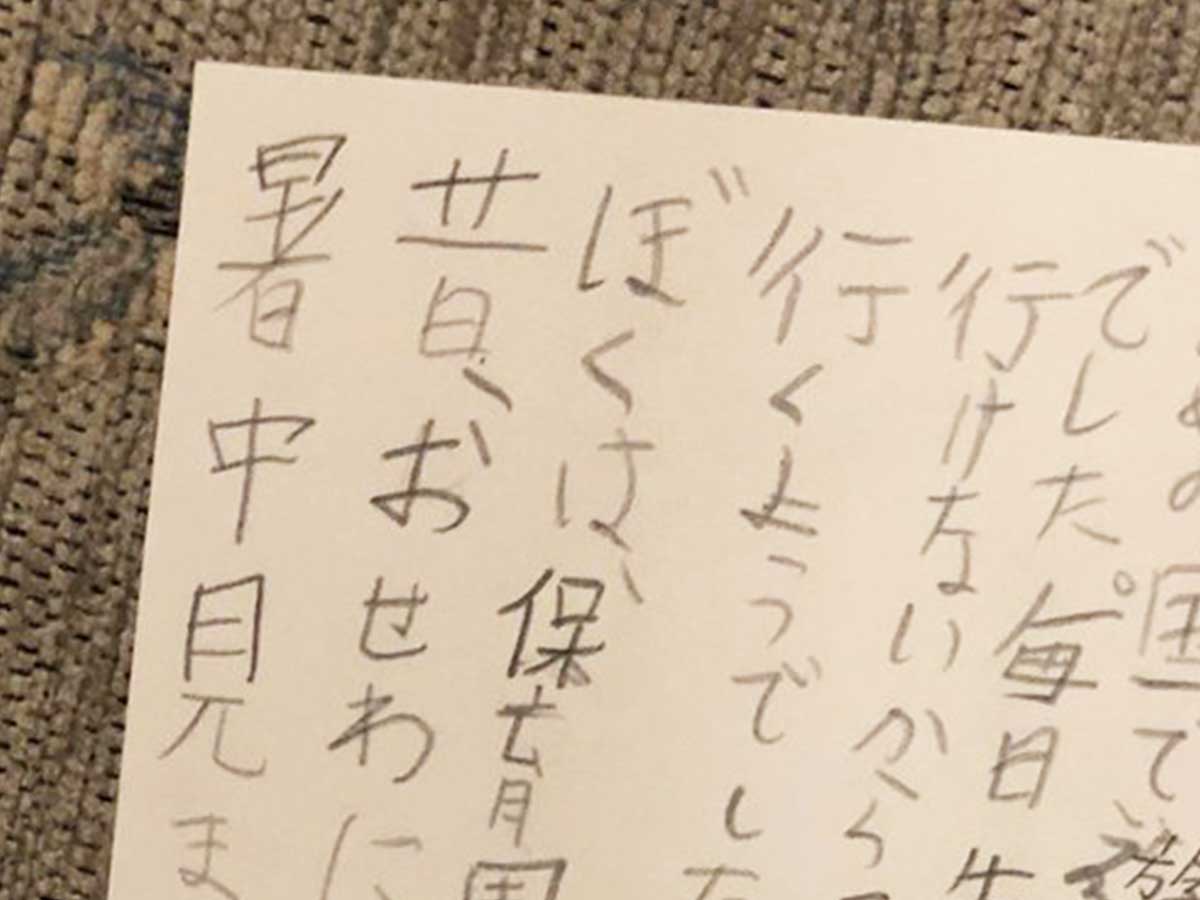 暑中見ま
昔、おせわに
ぼくは、保育園
行くようでした
行けないから
でした。毎日
で